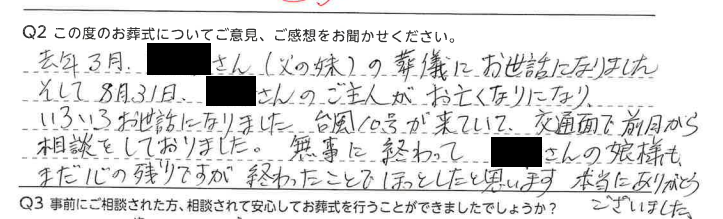 Q2 この度のお葬式についてご意見、ご感想をお聞かせください。
去年3月、さん(父の妹)の葬儀にお世話になりました
そして8月31日、さんのご主人がお亡くなりになり、
いろいろお世話になりました。台風10号が来ていて、交通面で前日から
相談をしておりました。無事に終わってさんの娘様も、
まだ心の残りですが終わったことでほっとしたと思います 本当にありがとう
ございました。
Q3 事前にご相談された方、相談されて安心してお葬式を行うことができましたでしょうか?